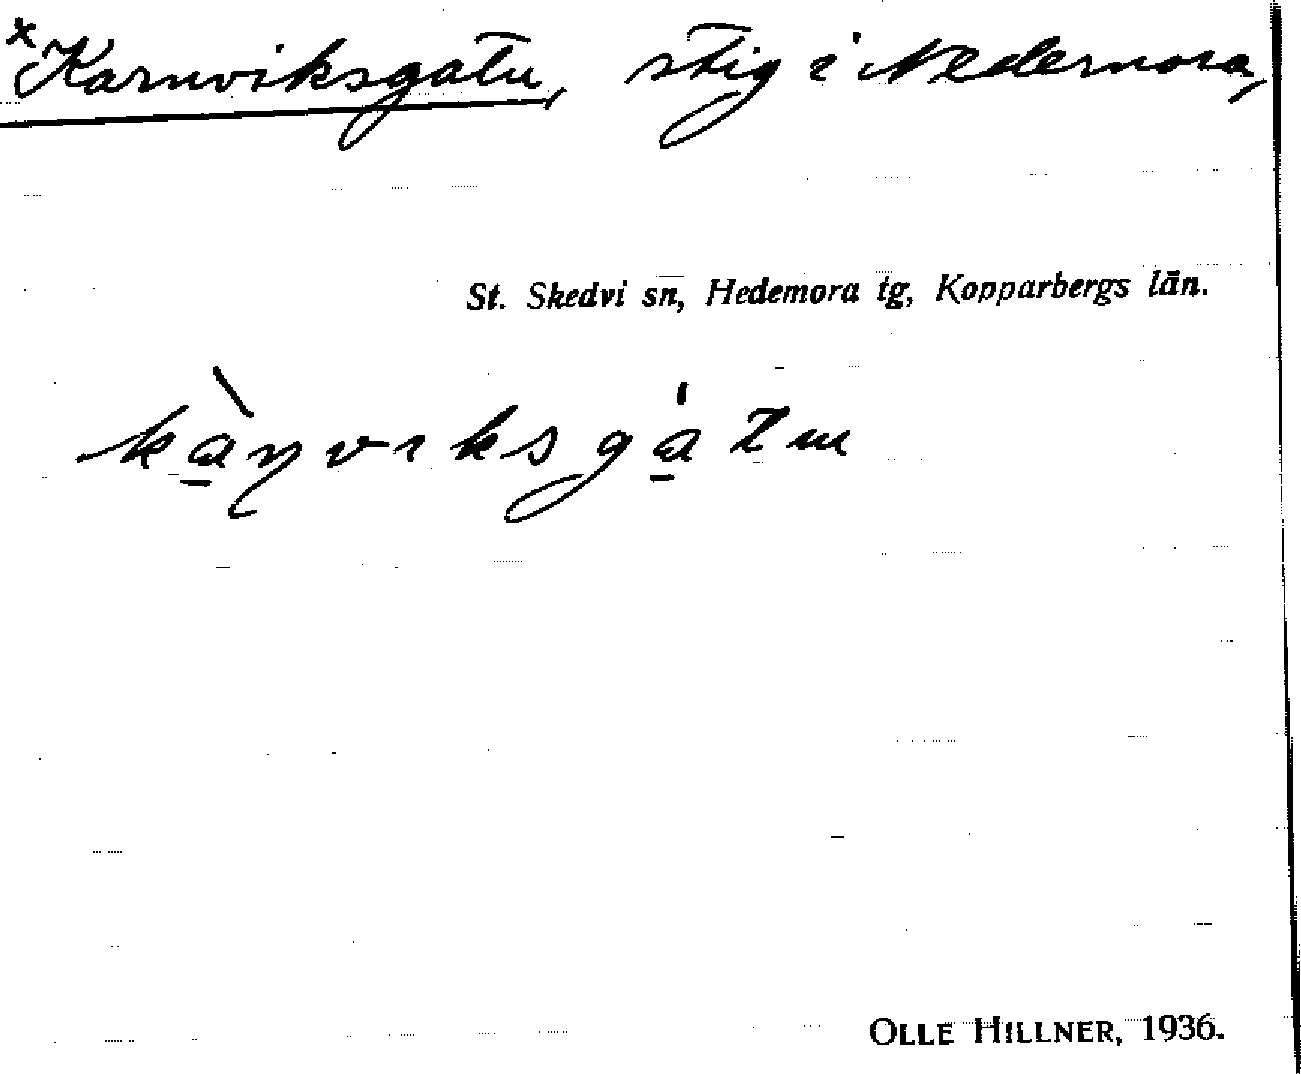 × Karnviksgatu, stig i Nedernora,
St. Skedvi sn, Hedemora tg, Kopparbergs län.
OLLE HILLNER, 1936.